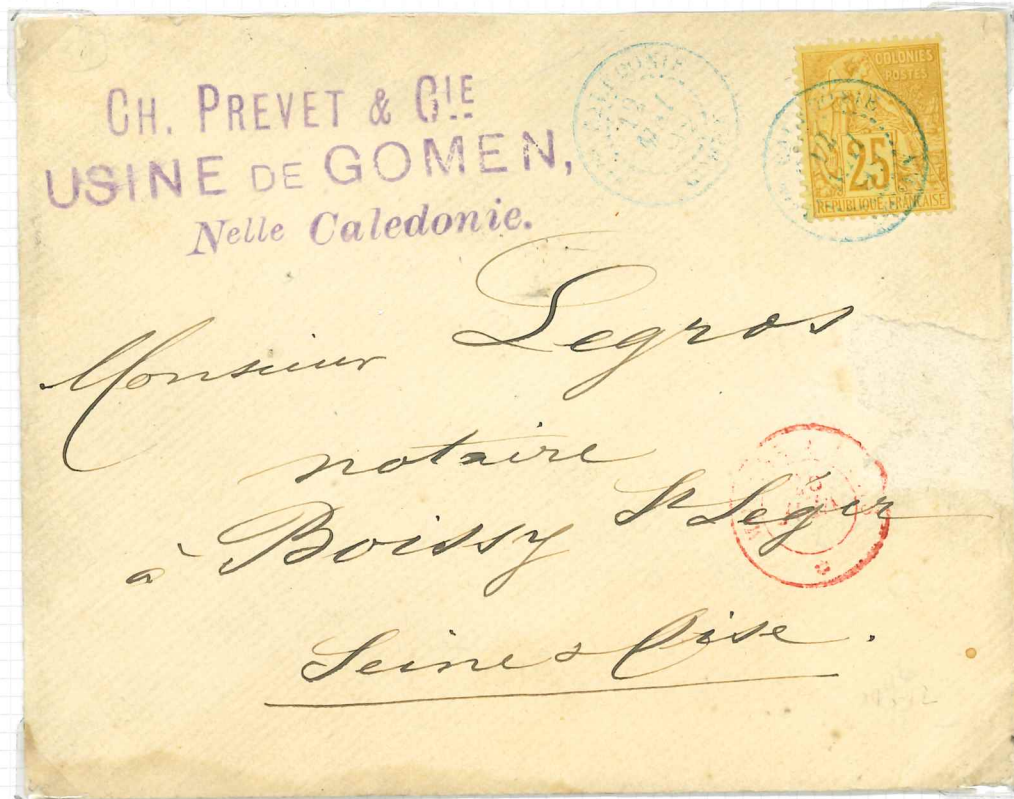 CH. PREVET & CIE
USINE DE GOMEN,
Nelle Caledonie.
CALEDONIE
COLONIES
POSTES
25
REPUBLIQUE FRANCAISE
Monsieur Legros
notaire
à Boissy St Leger
Seine & Oise.